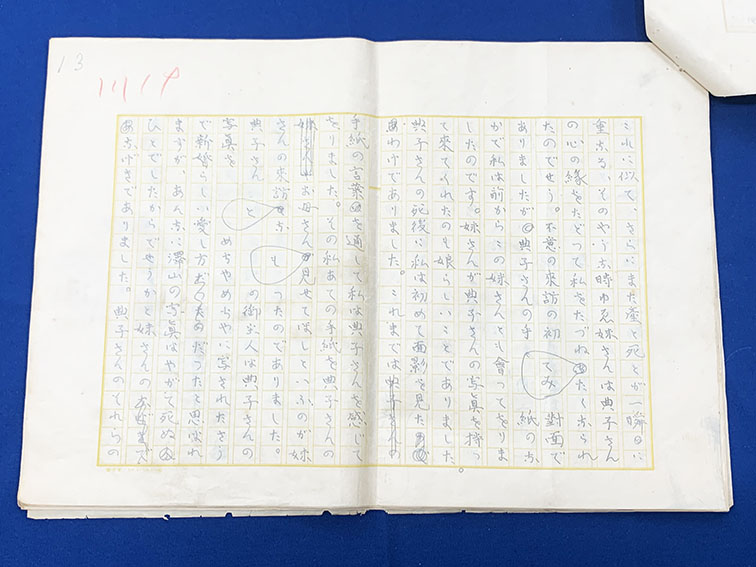 13
これに似て、さらにまた產と死とが一瞬に
重なる、そのやうな時ゆゑ妹さんは典子さん
の心の緣をたどつて私をたづねたくなられ
たのでせう。不意の來訪の初對面で
ありましたが典子さんの手紙のな
かで私は前からこの妹さんとも會つてをりま
したのです。妹さんが典子さんの写真を持つ
て來てくれたのも娘らしいことでありました
典子さんの死後に私は初めて面影を見た
わけでありました。これまでは
手紙の言葉を通して私は典子さんを感じて
をりました。その私あての手紙を典子さんの
お母さんに見せてほしいといふのが妹
さんの來訪もつたのでありました。
典子さんとの御主人は典子さんの
写真をめちやめちやに写されたさう
で新婚らしい愛し方だつたと思はれ
ますが、あんなに澤山の写真はやがて死ぬ
ひとでしたからでせうかと妹さんの
なげきでありました。典子さんのそれらの